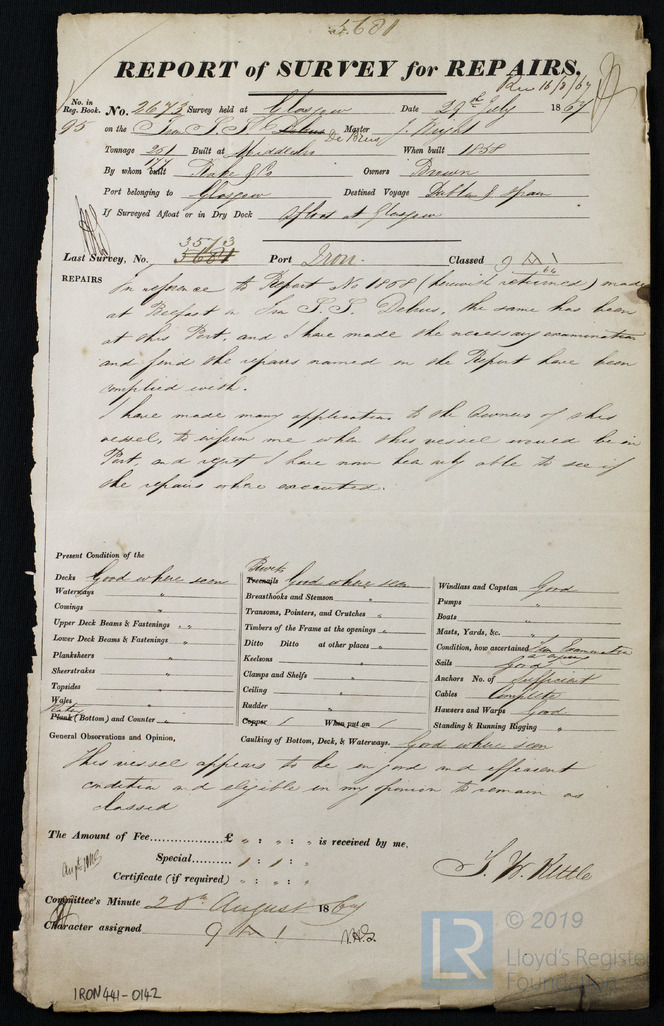 5681
REPORT of SURVEY for REPAIRS.
Rec 16/8/67
No. in Reg. Book.
No. 2673 Survey held at Glasgow Date 29th July 1867
95 on the Iron S.S. Debrus De Brus Master J. Wight
Tonnage 251 Built at Middlesbro When built 1858
177
By whom built Rake & Co Owners Brown
Port belonging to Glasgow Destined Voyage Dublin & Spain
If Surveyed Afloat or in Dry Dock Afloat at Glasgow
3573
Last Survey, No. 5681 Port Iron Classed 9 A 1
66
REPAIRS
In reference to Report No 1808 (herewith returned) made
at Belfast on Iron S.S. Debrus, the same has been
at this Port, and I have made the necessary examination
and find the repairs named in the Report have been
complied with.
I have made many applications to the Owners of this
vessel, to inform me when this vessel would be in
Port, and regret I have now been only able to see if
the repairs where executed.
Present Condition of the
Decks Good where seen
Waterways "
Comings "
Upper Deck Beams & Fastenings "
Lower Deck Beams & Fastenings "
Planksheers "
Sheerstrakes "
Topsides "
Wales "
Plates
Plank (Bottom) and Counter "
Rivets
Treenails Good where seen
Breasthooks and Stemson "
Transoms, Pointers, and Crutches "
Timbers of the Frame at the openings "
Ditto Ditto at other places "
Keelsons "
Clamps and Shelfs "
Ceiling "
Rudder "
Copper / When put on /
Windlass and Capstan Good
Pumps "
Boats "
Masts, Yards, &c. "
Condition, how ascertained From Examination
Sails Good
Anchors No. of Sufficient
Cables Complete
Hawsers and Warps Good
Standing & Running Rigging "
General Observations and Opinion,
Caulking of Bottom, Deck, & Waterways. Good where seen
This vessel appears to be in good and efficient
condition and eligible in my opinion to remain as
classed
The Amount of Fee............... £ " : " : " is received by me,
Special.......... 1 : 1 : "
Certificate (if required) " : " : "
J. W. Kettle
Committee's Minute 20th August 1867
Character assigned 9 A 1
IRON441-0142
LR
© 2019
Lloyd's Register
Foundation